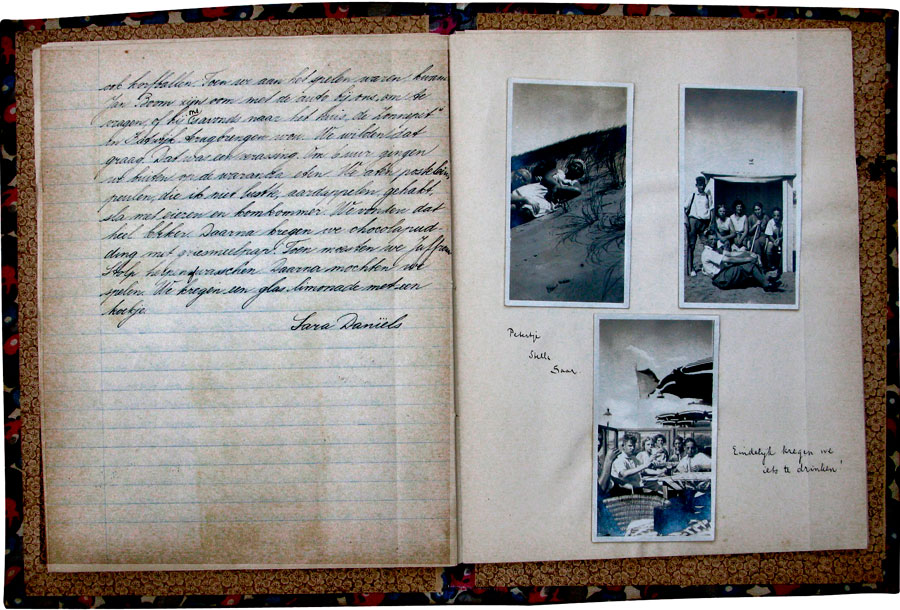 ook korfballen. Toen we aan het spelen waren kwam
Jan Boom zijn oom met de auto bij ons om te
vragen, of hij ons 's avonds naar het huis, de
in Katwijk terugbrengen wou. We wilden dat
graag. Dat was een verassing. Om 6 uur gingen
we buiten op de waranda eten. We aten postelein
peulen, die ik niet lustte, aardappelen, gehakt,
sla met eieren en komkommer. We vonden dat
heel lekker. Daarna kregen we chocolapud-
ding met griesmeelpap. Toen moesten we Juffrouw
Stolp helpen wasschen. Daarna mochten we
spelen. We kregen een glas limonade met een
koekje.
Sara Daniëls
Petertje
Stella
Saar
Eindelijk kregen we
iets te drinken!